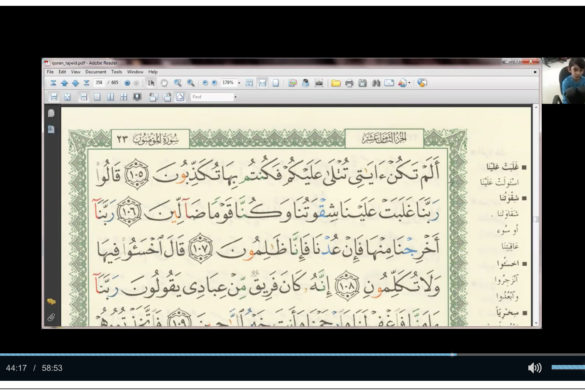 quran_tajwid.pdf - Adobe Reader
File Edit View Document Tools Window Help
179%
Find
الجزء الثامن عشر
سورة المؤمنون ٢٣
أَلَمْ تَكُنْ ءَايَٰتِى تُتْلَىٰ عَلَيْكُمْ فَكُنتُم بِهَا تُكَذِّبُونَ ١٠٥ قَالُوا۟
رَبَّنَا غَلَبَتْ عَلَيْنَا شِقْوَتُنَا وَكُنَّا قَوْمًا ضَآلِّينَ ١٠٦ رَبَّنَآ
أَخْرِجْنَا مِنْهَا فَإِنْ عُدْنَا فَإِنَّا ظَٰلِمُونَ ١٠٧ قَالَ ٱخْسَـُٔوا۟ فِيهَا
وَلَا تُكَلِّمُونِ ١٠٨ إِنَّهُۥ كَانَ فَرِيقٌ مِّنْ عِبَادِى يَقُولُونَ رَبَّنَآ
غَلَبَتْ عَلَيْنَا
اسْتَوْلَتْ عَلَيْنَا
شِقْوَتُنا
شَقاوَتُنا
أو سُوء
عاقِبَتِنا
اخسئوا
انْزَجِرُوا
وابْعُدُوا
سِخْرِيّاً
44:17 / 58:53